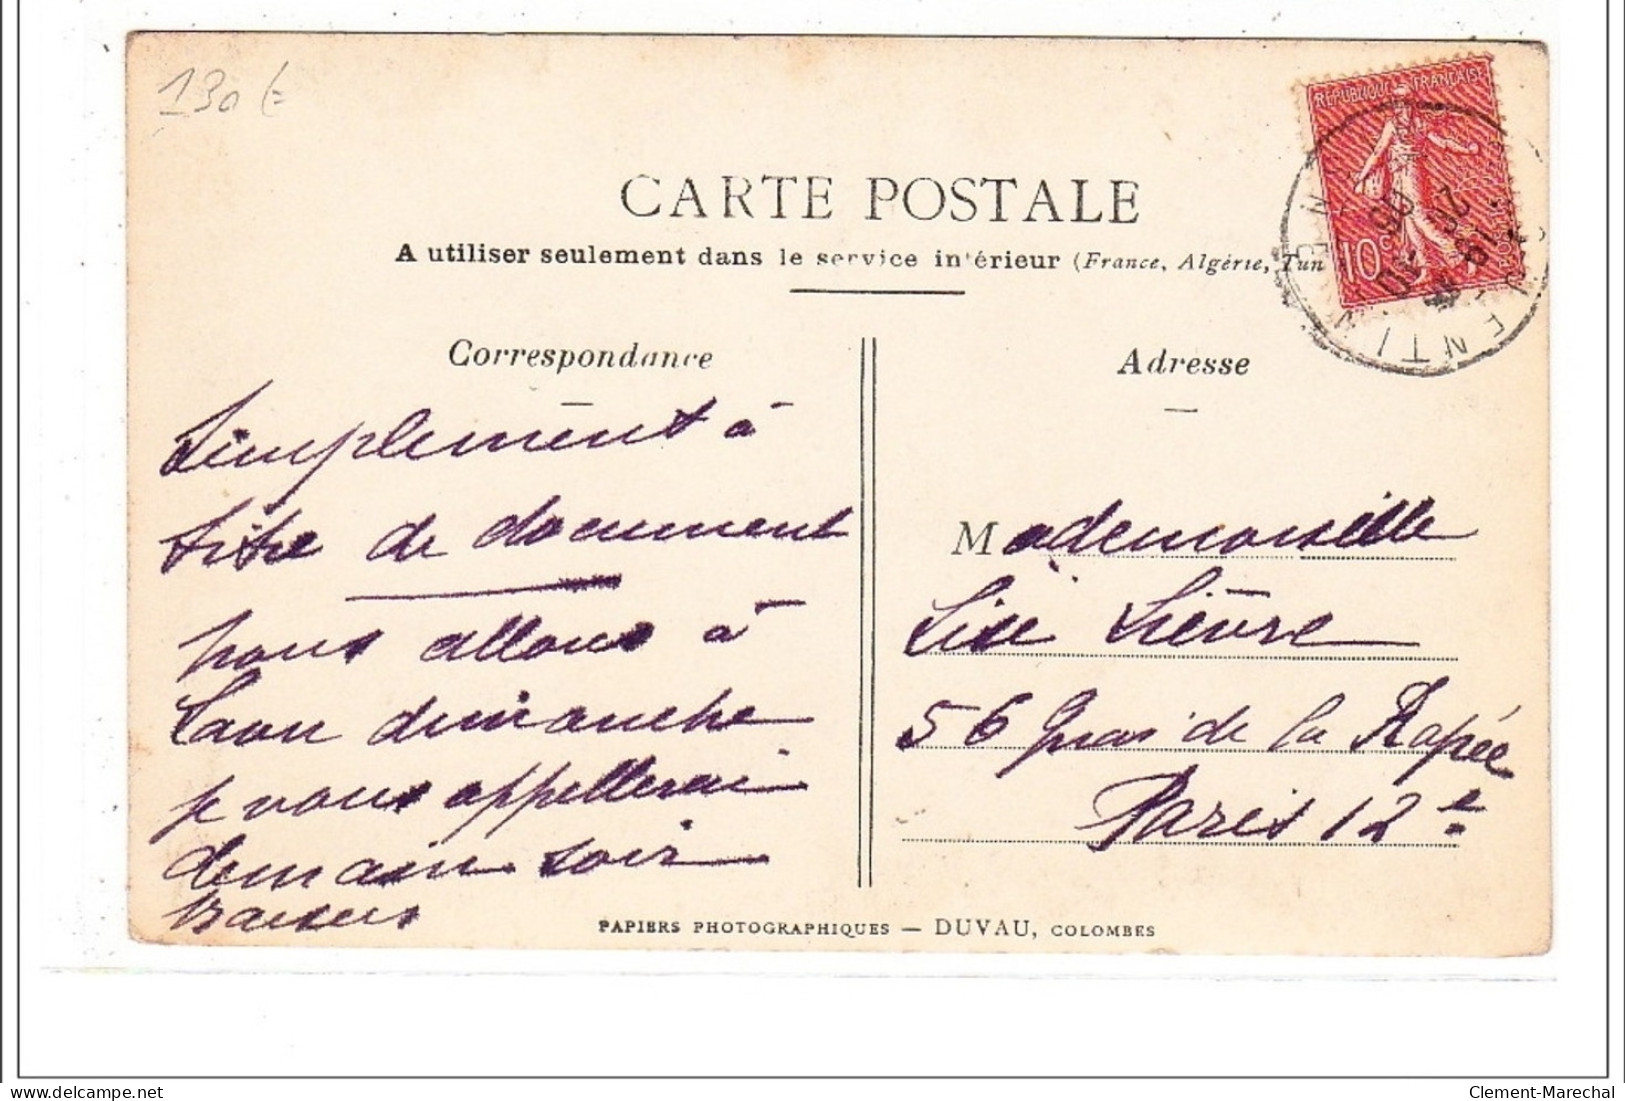 130 €
CARTE POSTALE
A utiliser seulement dans le service intérieur (France, Algérie, Tun
REPUBLIQUE FRANÇAISE
10c
POSTES
Correspondance
Adresse
Simplement à
titre de document
nous allons à
Laon dimanche
je vous appellerai
demain soir
Baisers
Mademoiselle
Lise Lièvre
56 Quai de la Rapée
Paris 12e
PAPIERS PHOTOGRAPHIQUES — DUVAU, COLOMBES
Clement-Marechal